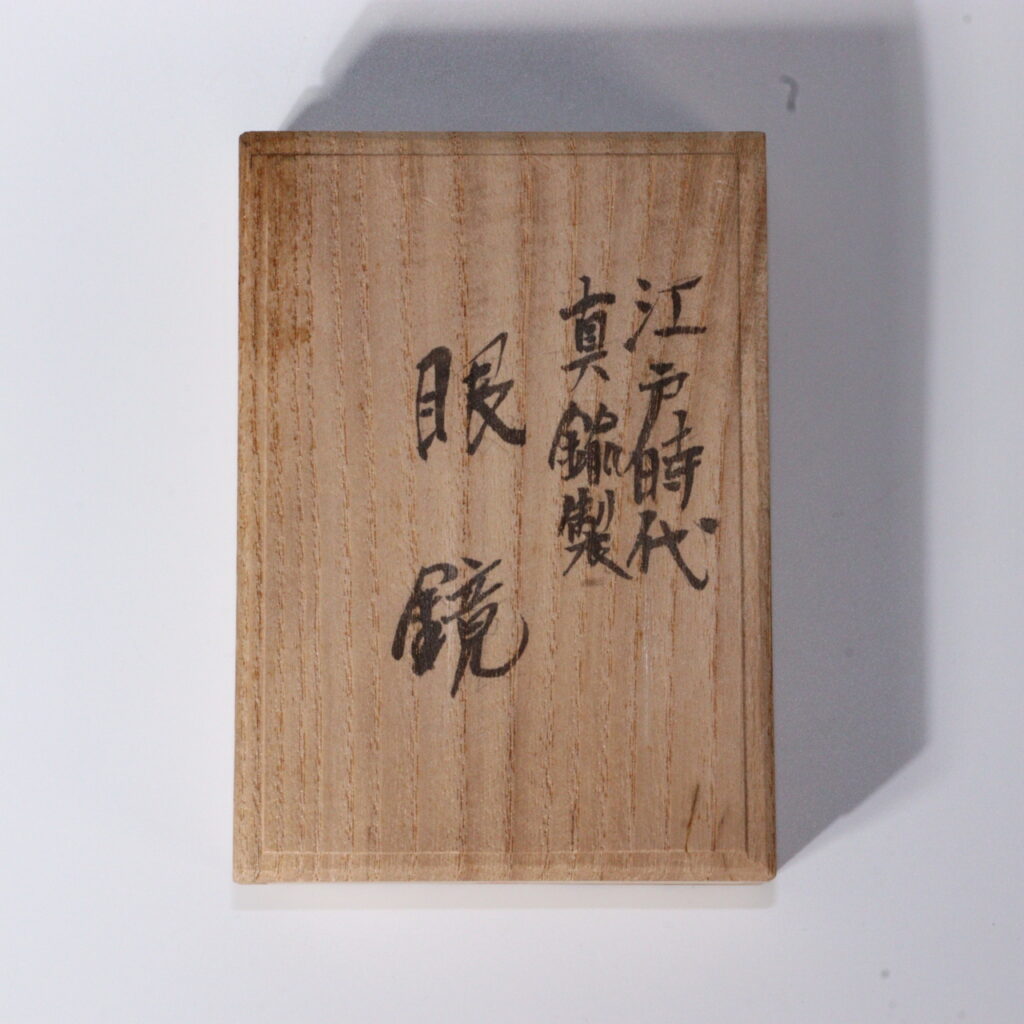 江戸時代
真鍮製
眼鏡